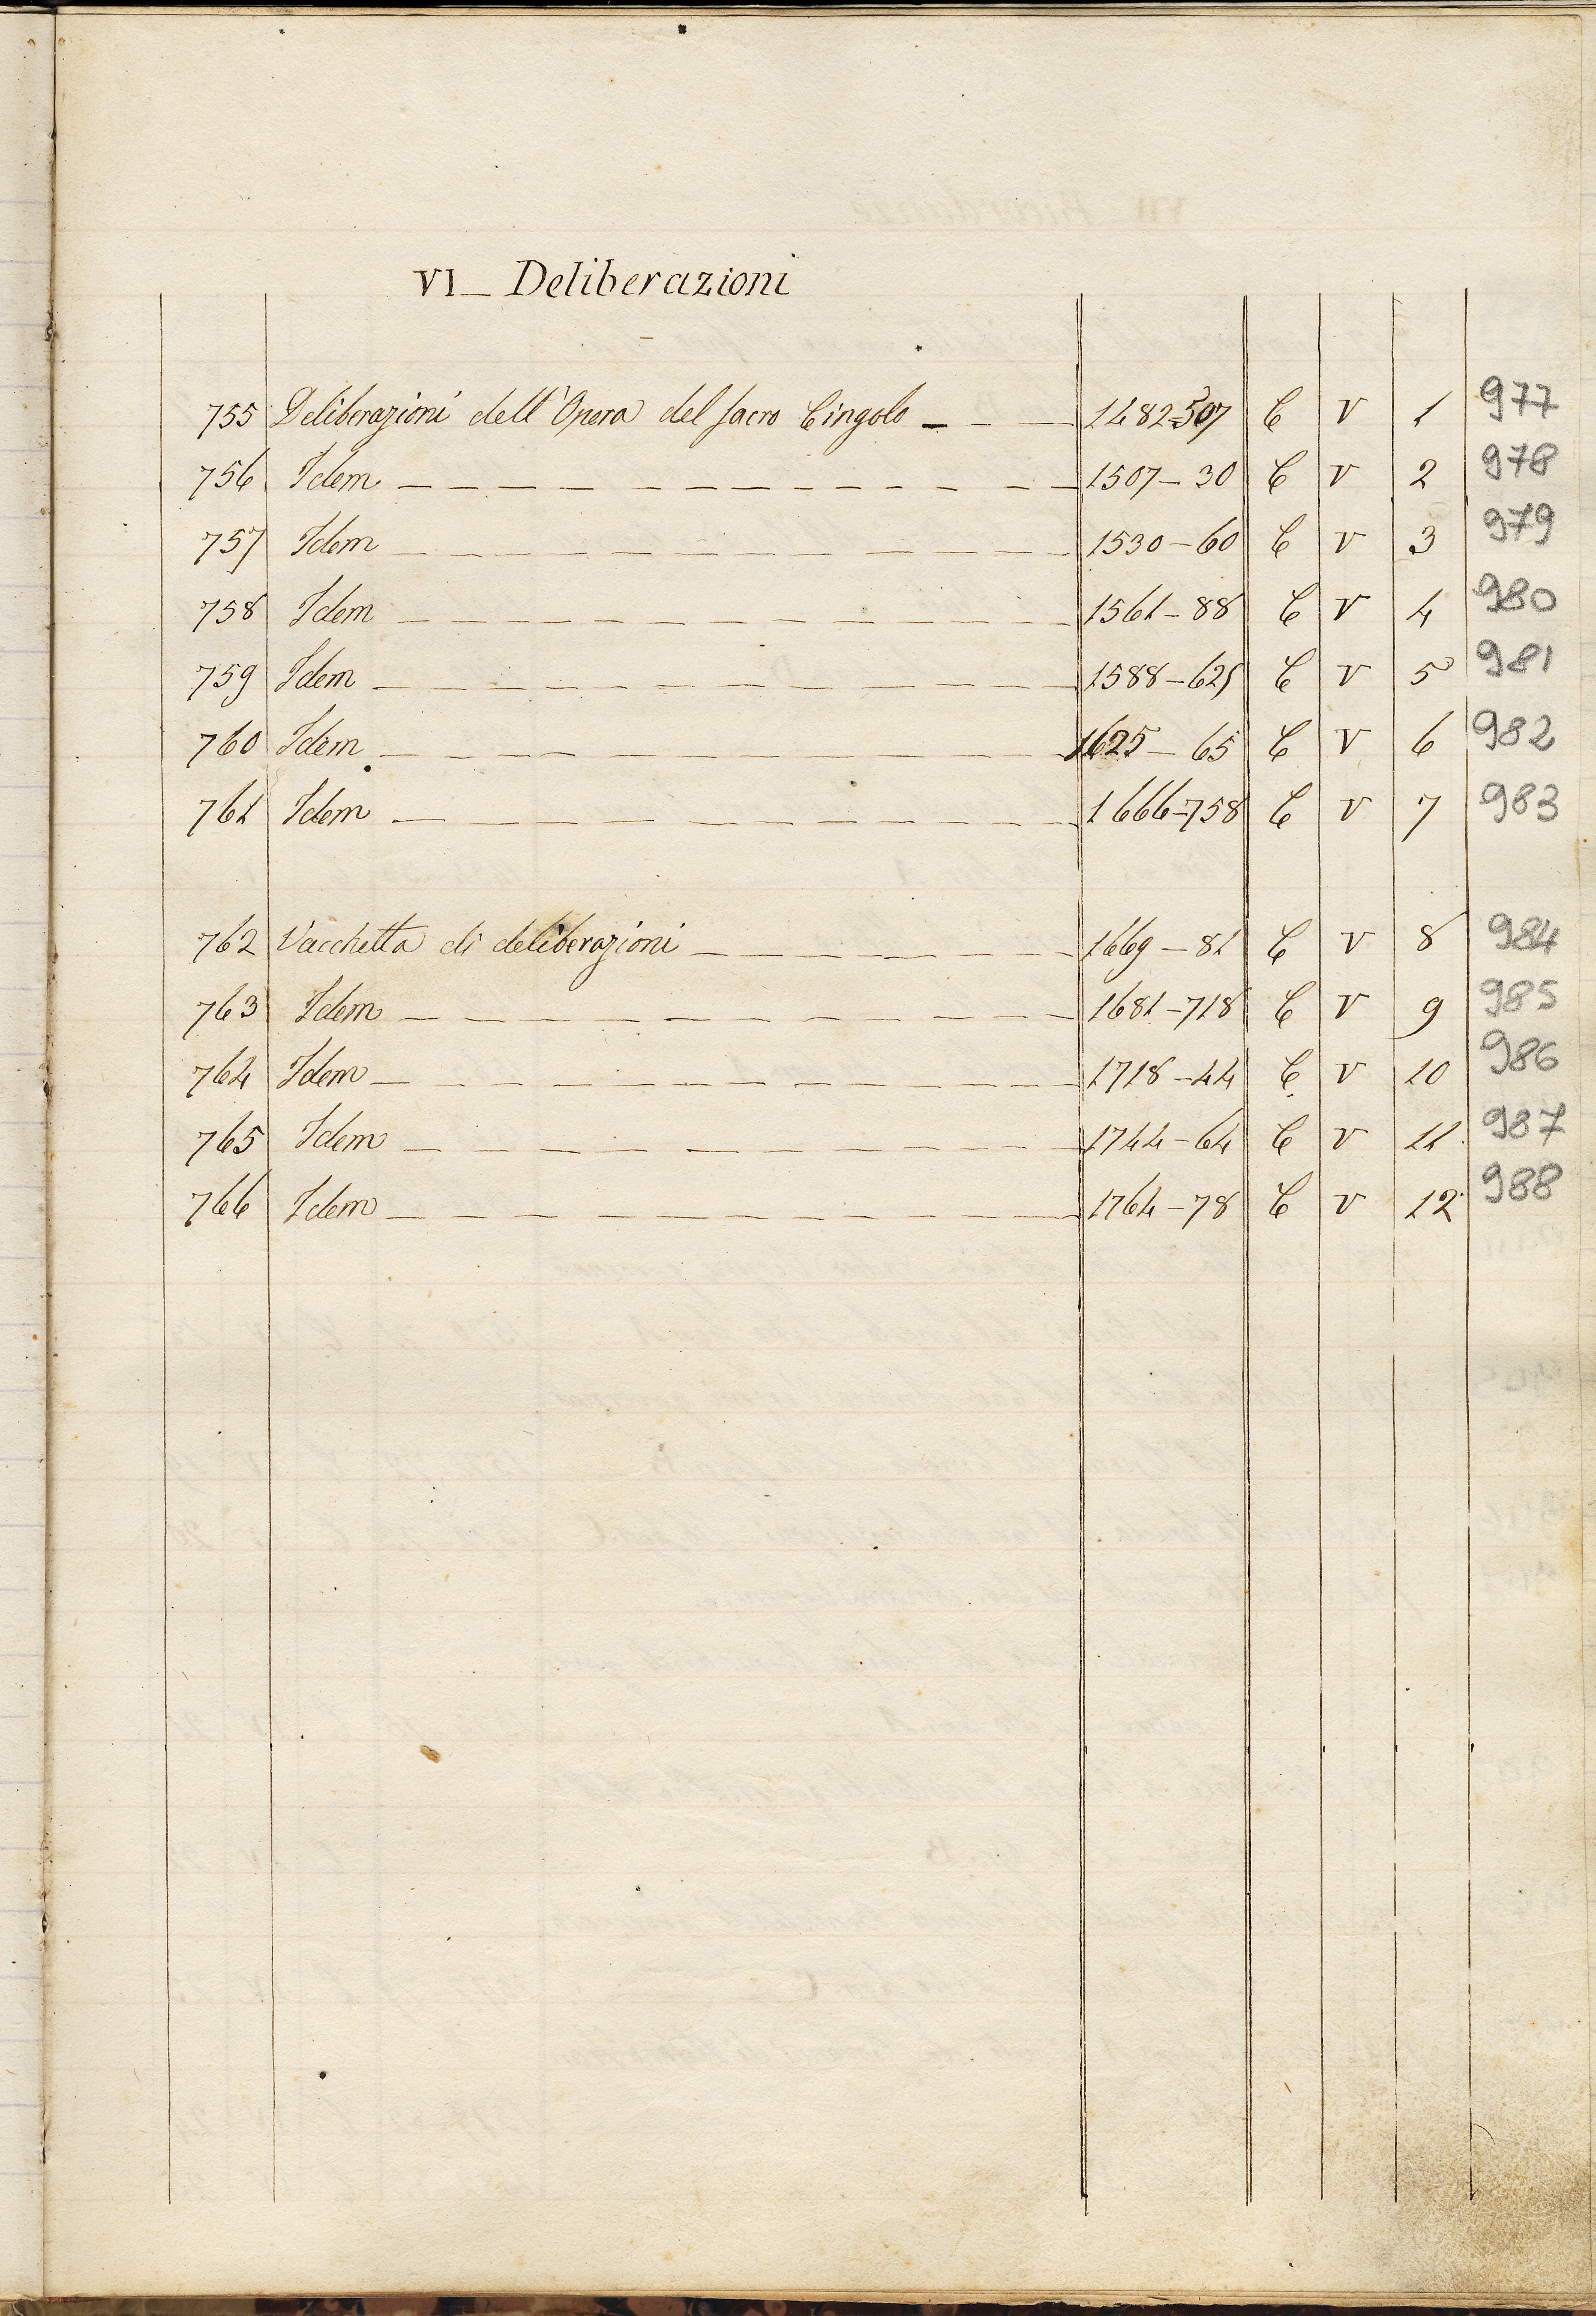 VI_ Deliberazioni
755 Deliberazioni dell'Opera del sacro Cingolo 1482-507 C V 1 977
756 Idem 1507-30 C V 2 978
757 Idem 1530-60 C V 3 979
758 Idem 1561-88 C V 4 980
759 Idem 1588-625 C V 5 981
760 Idem 1625-65 C V 6 982
761 Idem 1666-758 C V 7 983
762 Vacchetta di deliberazioni 1669-81 C V 8 984
763 Idem 1681-718 C V 9 985
764 Idem 1718-44 C V 10 986
765 Idem 1744-64 C V 11 987
766 Idem 1764-78 C V 12 988